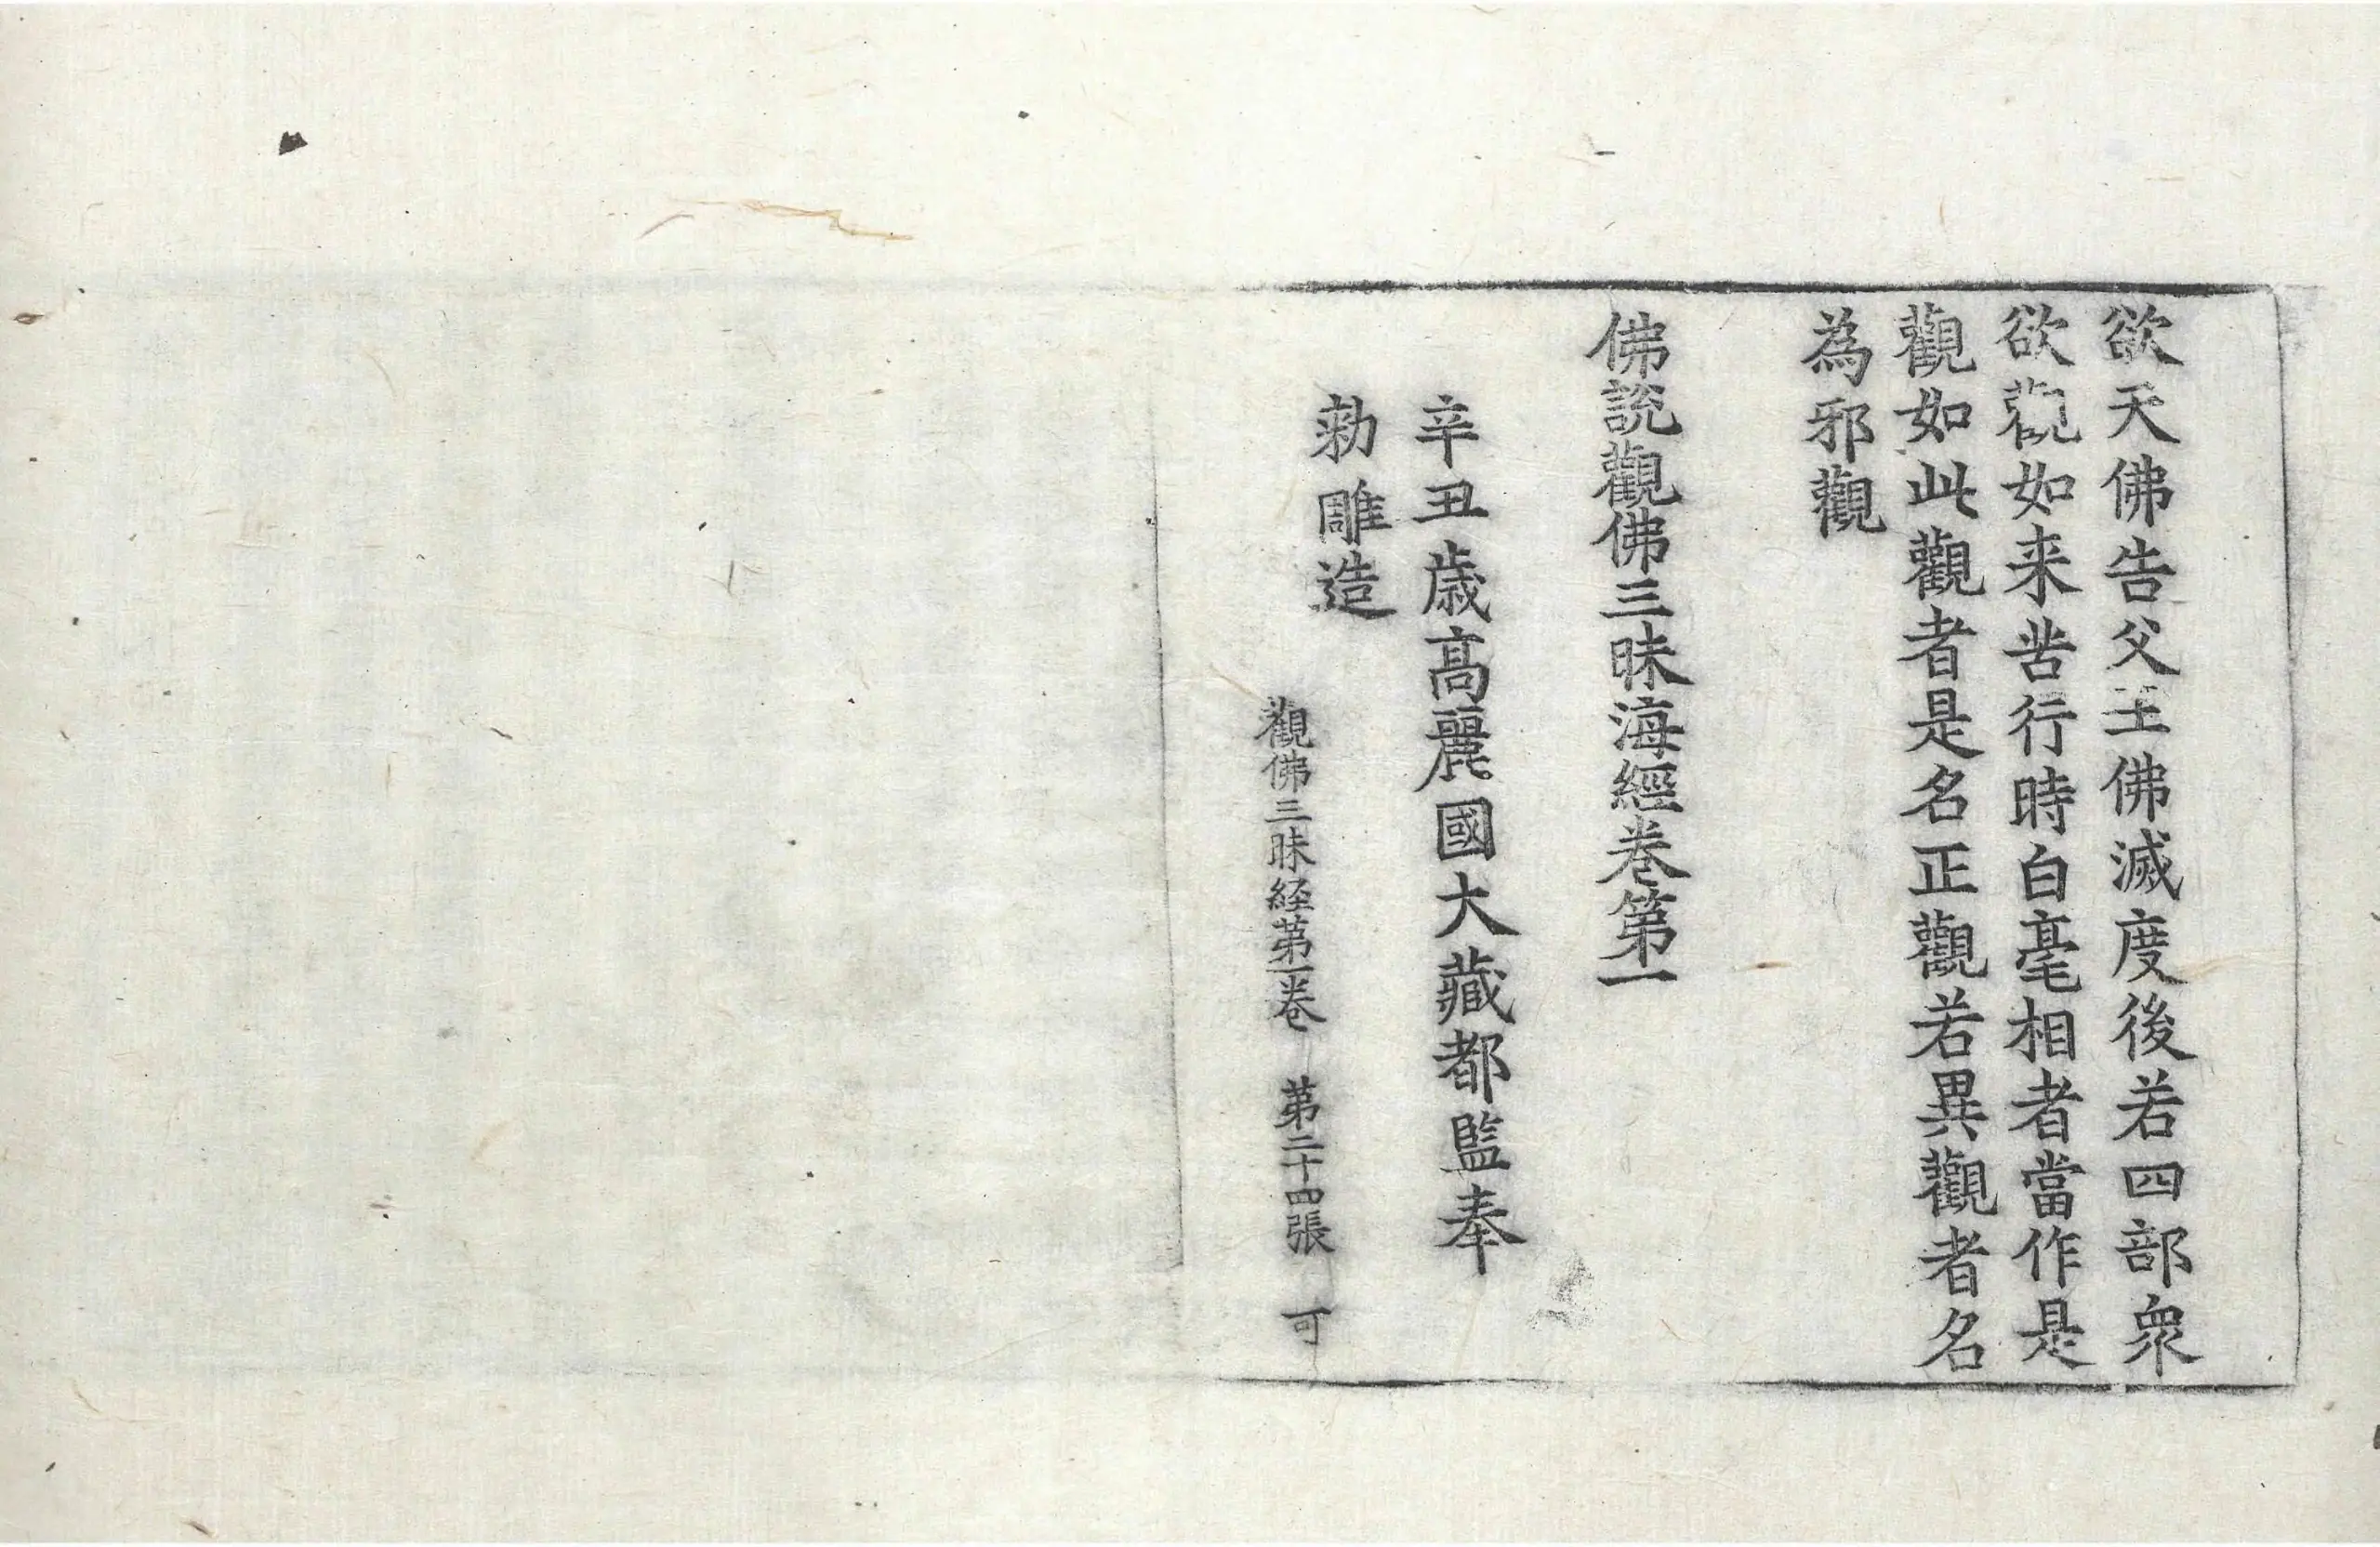 欲天佛告父王佛滅度後若四部衆
欲觀如来苦行時白毫相者當作是
觀如此觀者是名正觀若異觀者名
為邪觀
佛說觀佛三昧海經卷第一
辛丑歲高麗國大藏都監奉
勑雕造
觀佛三昧経第一卷 第二十四張 可